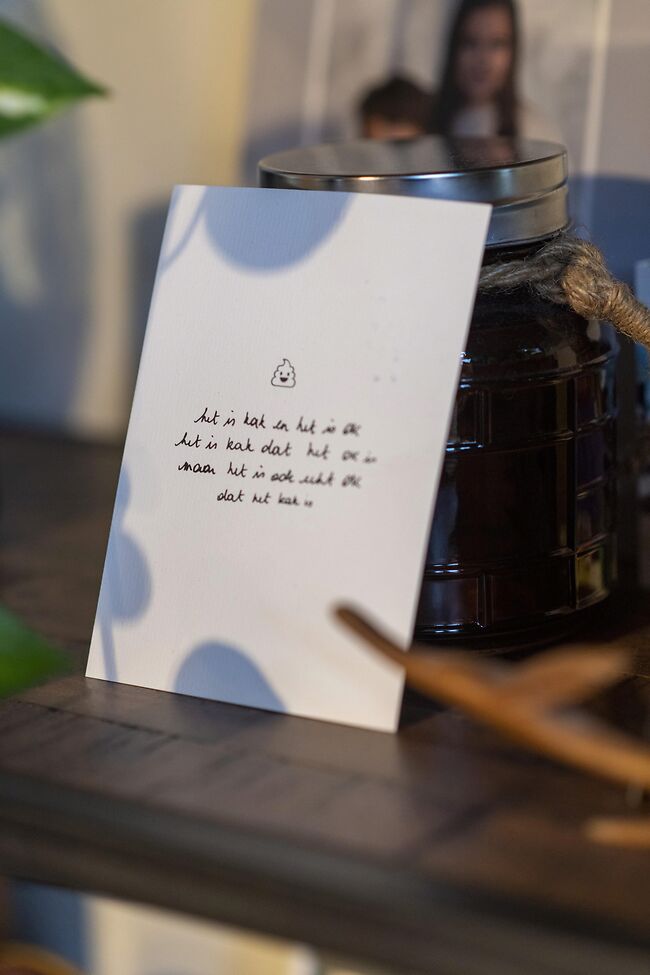 het is kak en het is ok
het is kak dat het ok is
maar het is ook echt ok
dat het kak is